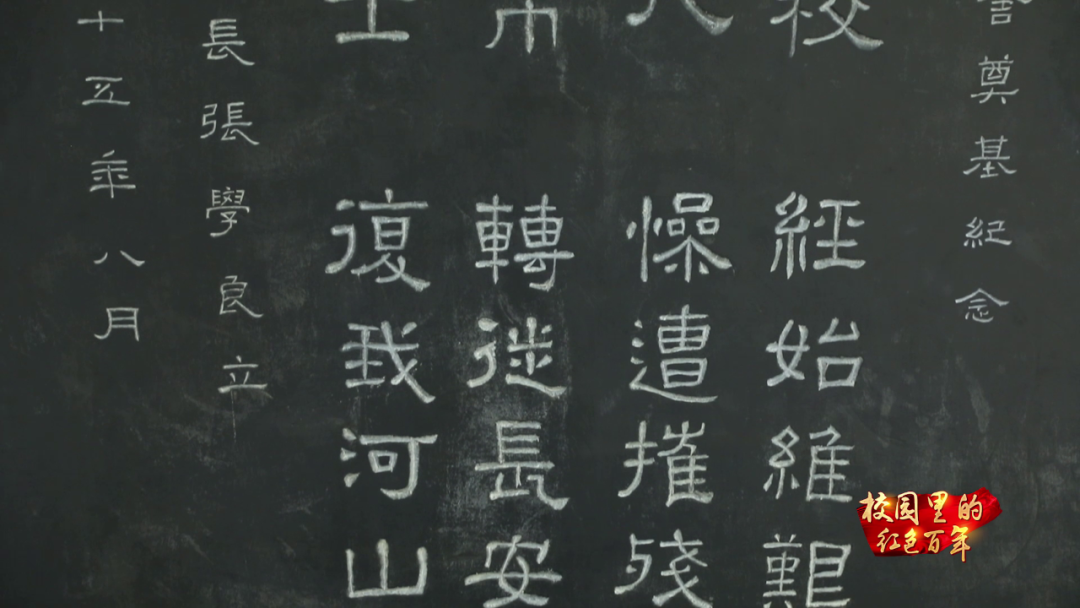 舍奠基紀念
校 經始維艱
八 懆遭摧殘
市 轉徙長安
士 復我河山
長張學良立
十五年八月
校园里的
红色百年